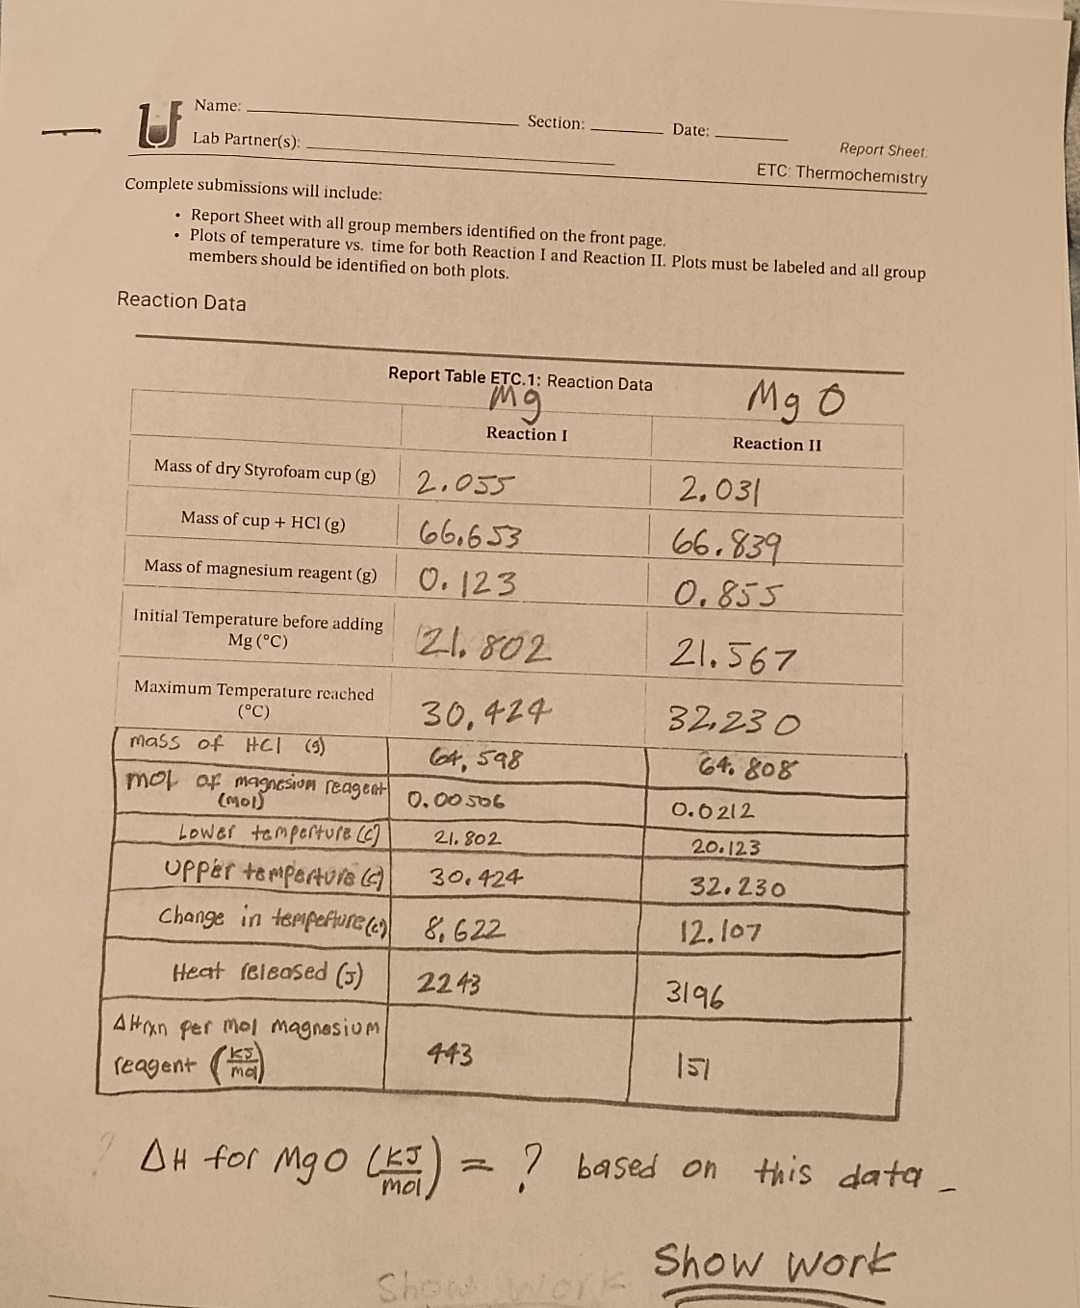 Name:
Section:
Date:
Lab Partner(s):
Report Sheet:
ETC: Thermochemistry
Complete submissions will include:
• Report Sheet with all group members identified on the front page.
• Plots of temperature vs. time for both Reaction I and Reaction II. Plots must be labeled and all group
members should be identified on both plots.
Reaction Data
Report Table ETC.1: Reaction Data
Mg MgO
Reaction I Reaction II
Mass of dry Styrofoam cup (g) 2.055 2.031
Mass of cup + HCl (g) 66.653 66.839
Mass of magnesium reagent (g) 0.123 0.855
Initial Temperature before adding
Mg (°C) 21.802 21.567
Maximum Temperature reached
(°C) 30.424 32.230
mass of HCl (g) 64.598 64.808
mol of magnesium reagent
(mol) 0.00506 0.0212
Lower temperture (c) 21.802 20.123
Upper temperture (c) 30.424 32.230
Change in temperture (c) 8.622 12.107
Heat released (J) 2243 3196
ΔHrxn per mol magnesium
reagent (kJ/mol) 443 151
? ΔH for MgO (kJ/mol) = ? based on this data
Show work
Show work